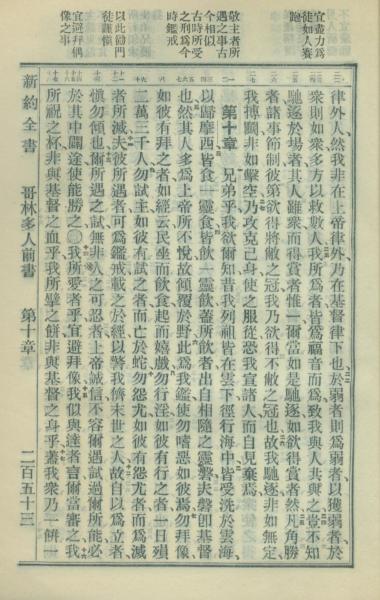 宜盡力爲
徒如人賽
跑
敬主者所
遇之事古
今相似
古時所受
之刑爲今
時鑑戒
以此勸門
徒謹愼
宜避拜偶
像之事
律外人然我非在上帝律外乃在基督律下也於弱者則爲弱者以獲弱者於
衆則如衆多方以救數人我所爲者皆爲福音而爲致我與人共與之豈不知
馳逐於場者其人雖衆而得賞者惟一爾當如是馳逐如欲得賞者然凡角勝
者諸事節制彼第欲得將敝之冠我乃欲得不敝之冠也故我馳逐非如無定
我搏鬭非如擊空乃攻克己身使之服從恐我宣諸人而自見棄焉
第十章 兄弟乎我欲爾知昔我列祖皆在雲下徑行海中皆受洗於雲海
以歸摩西皆食一靈食皆飲一靈飲蓋所飲者出自相隨之靈磐夫磐卽基督
也然其人多爲上帝所不悅故傾覆於野此爲我鑑使勿嗜惡如彼焉勿拜像
如彼有拜之者如經云民坐而飲食起而嬉戲勿行淫如彼有行之者一日殞
二萬三千人勿試主如彼有試之者而亡於蛇勿怨尤如彼有怨尤者而爲滅
者所滅夫彼所遇者可爲鑑戒載之於經以警我儕末世之人故自以爲立者
愼勿傾也爾所遇之試無非人之可忍者上帝誠信不容爾遇試過爾所能必
於其中闢逭使能勝之〇我所愛者乎宜避拜像我似與達者言爾當審之我
所祝之杯非與基督之血乎我所擘之餅非與基督之身乎蓋我衆乃一餅一
新約全書 哥林多人前書 第十章 二百五十三